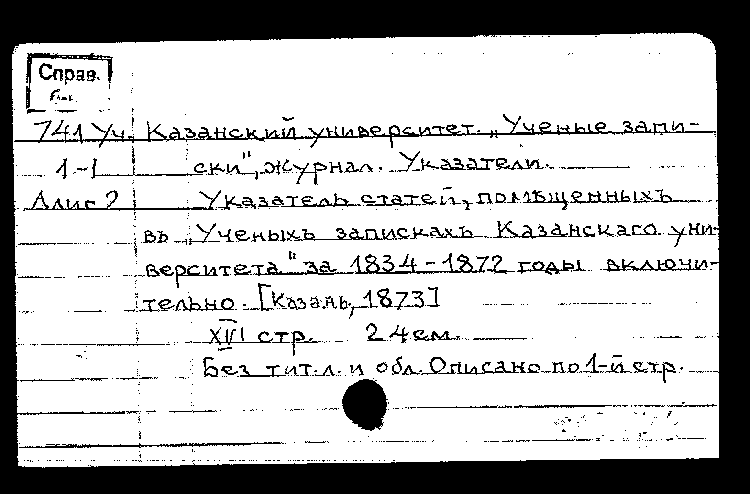 Справ.
741 Уч. Казанский университет. „Ученые запи-
1-1 ски", журнал. Указатели.
Указатель статей, помѣщенныхъ
въ „Ученыхъ запискахъ Казанскаго уни-
верситета" за 1834-1872 годы включи-
тельно. [Казань, 1873]
XVI стр. 24 см.
Без тит. л. и обл. Описано по 1-й стр.